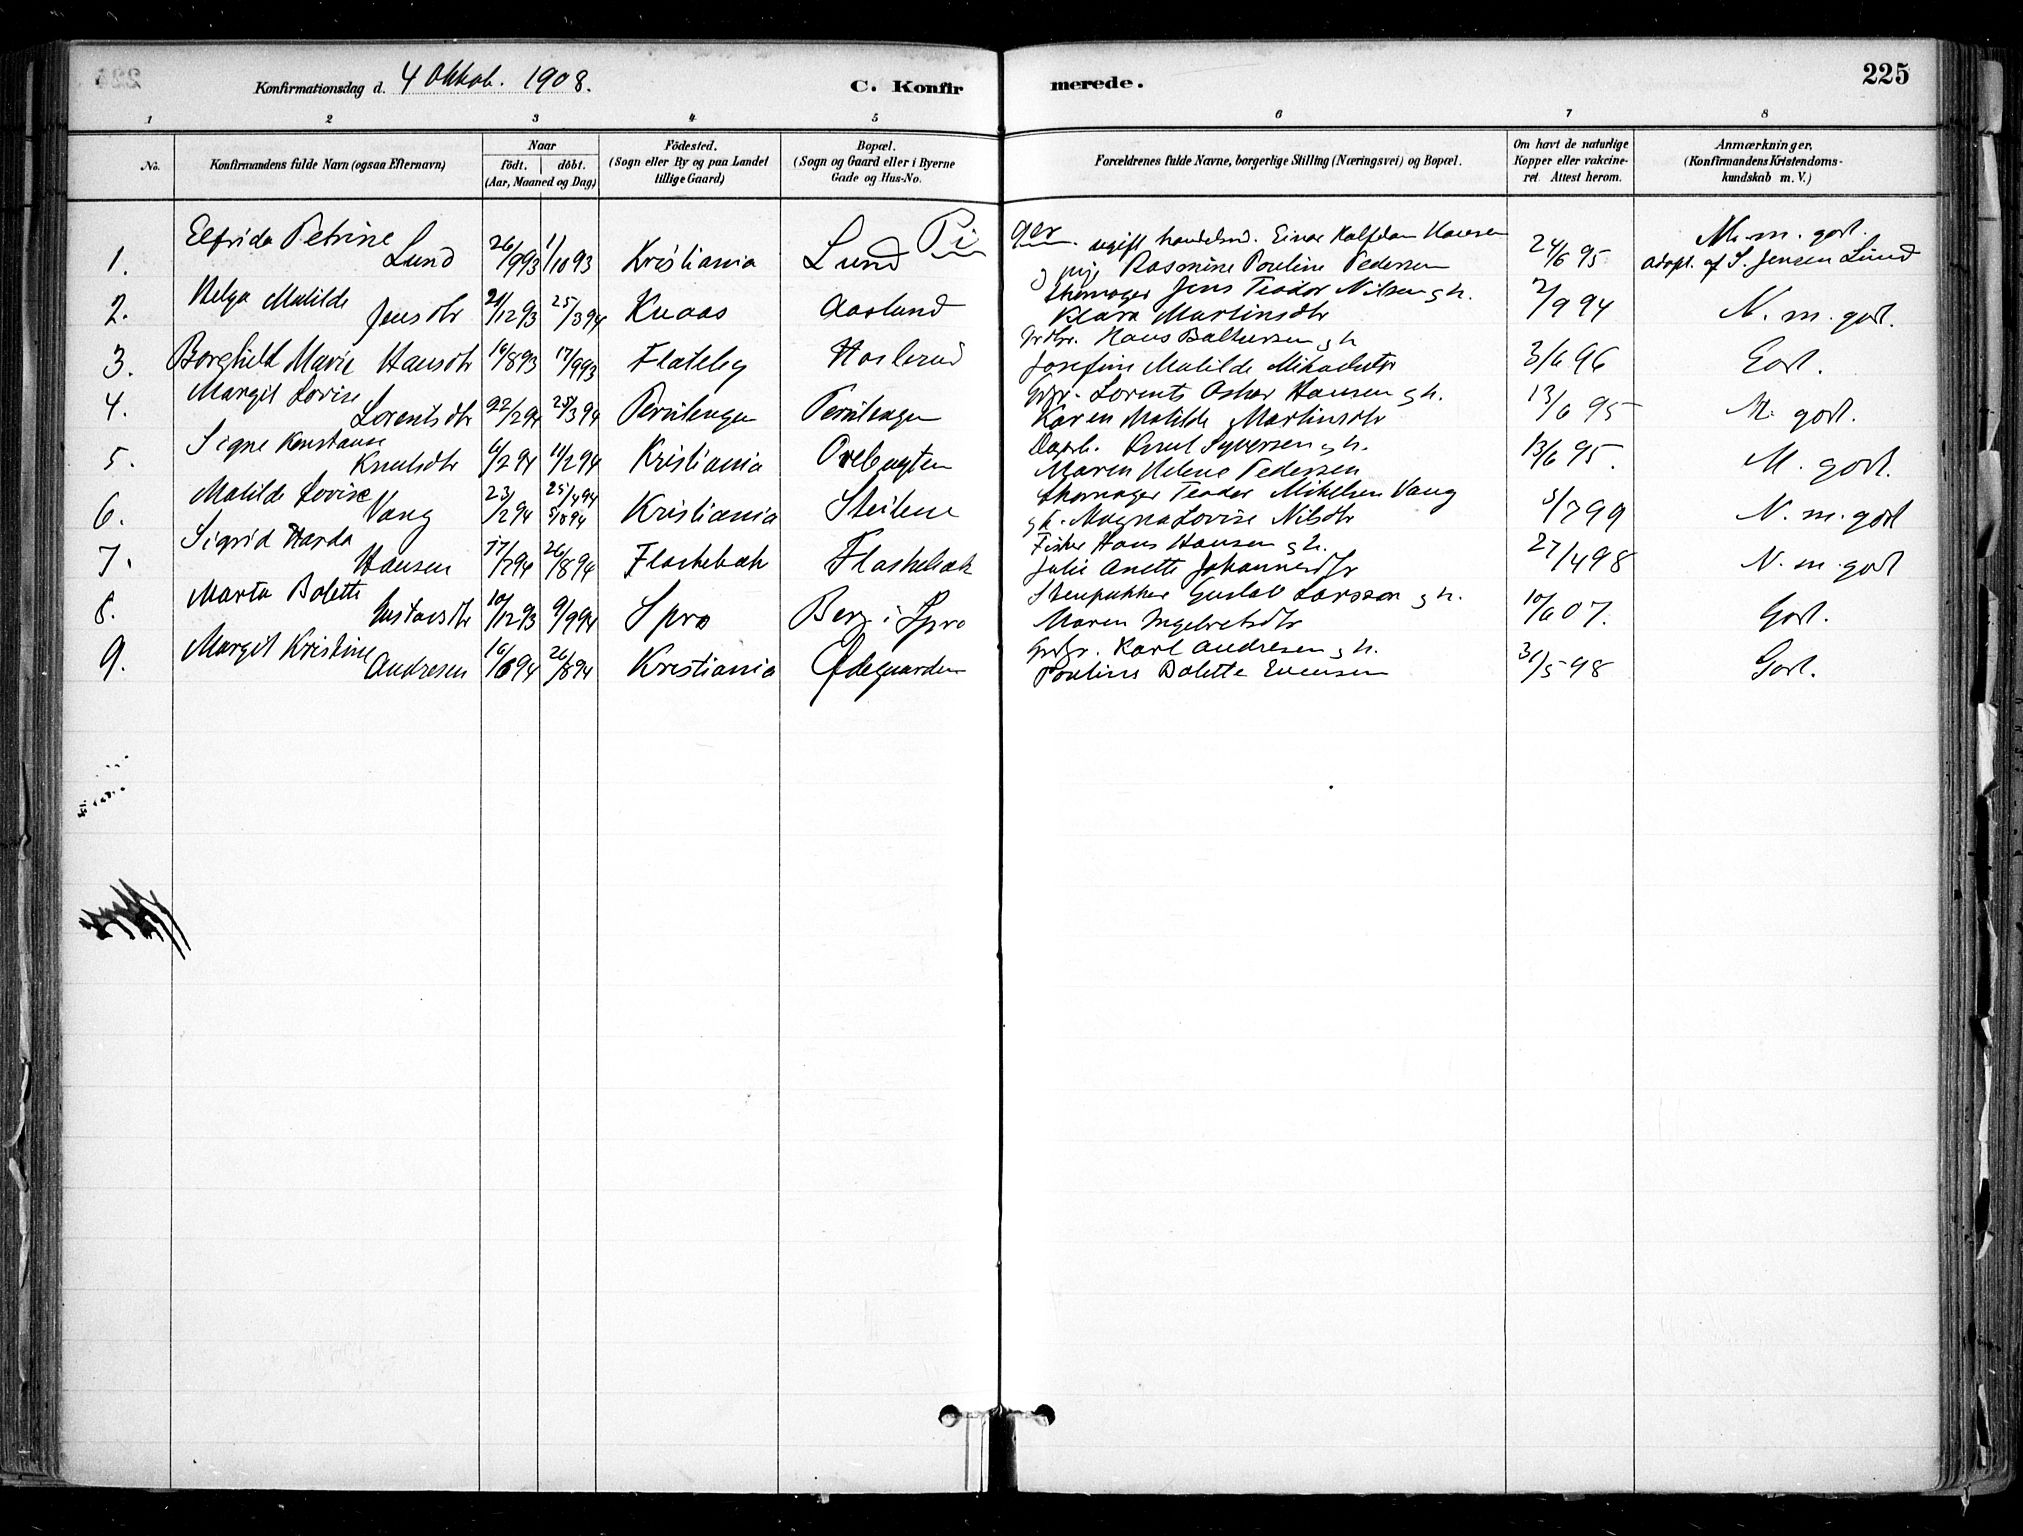 Konfirmationsdag d. 4 Oktob. 1908.
C. Konfirmerede.
225
1 2 3 4 5 6 7 8
No.
Konfirmandens fulde Navn (ogsaa Efternavn)
Naar
födt. döbt.
(Aar, Maaned og Dag)
Födested.
(Sogn eller By og paa Landet
tillige Gaard)
Bopæl.
(Sogn og Gaard eller i Byerne
Gade og Hus-No.
Forældrenes fulde Navne, borgerlige Stilling (Næringsvei) og Bopæl.
Om havt de naturlige
Kopper eller vakcine-
ret. Attest herom.
Anmærkninger.
(Konfirmandens Kristendoms-
kundskab m. V.)
Piger
1. Elfrida Petrine Lund 26/9 93 1/10 93 Kristiania Lund
ugift handelsb. Einar Halfdan Hansen
og pige Rasmine Pouline Pedersen
24/6 95
M. m. godt.
adopt. af S. Jensen Lund
2. Helga Matilde Jensdtr 21/12 93 25/3 94 Knaas Aaslund
Skomager Jens Teodor Nilsen og h.
Klara Martinsdtr
2/9 94 N. m. godt.
3. Borghild Marie Hansdtr 16/8 93 17/9 93 Flateby Haslerud
Grdbr. Hans Baltersen og h
Josefine Matilde Mikaelsdtr
3/6 96 Godt.
4. Margit Lovise Lorentsdtr 22/2 94 25/3 94 Pernlengen Pernlengen
Grbr. Lorents Oskar Hansen og h.
Karen Matilde Martinsdtr
13/6 95 M. godt.
5. Signe Konstanse Knutsdtr 6/2 94 11/2 94 Kristiania Orebugten
Dagarb. Knut Syversen og h.
Maren Helene Pedersen
13/6 95. M. godt.
6. Matilde Lovise Vang 23/2 94 25/4 94 5/8 94 Kristiania Steilene
Skomager Teodor Mikelsen Vang
og h. Magna Lovise Nilsdtr
5/7 99 N. m. godt
7. Sigrid Harda Hansen 17/7 94 26/8 94 Flaskebæk Flaskebæk
Fisker Hans Hansen og h.
Julie Anette Johannesdtr
27/4 98 N. m. godt
8. Marta Bolette Gustavsdtr 10/12 93 9/9 94 Spro Berg i Spro
Stenpukker Gustav Larsson og h.
Maren Ingebretsdtr
10/6 07. Godt.
9. Margit Kristine Andresen 16/6 94 26/8 94 Kristiania Ødegaarden
Grdbr. Karl Andresen og h.
Pouline Bolette Evensen
31/5 98 Godt.